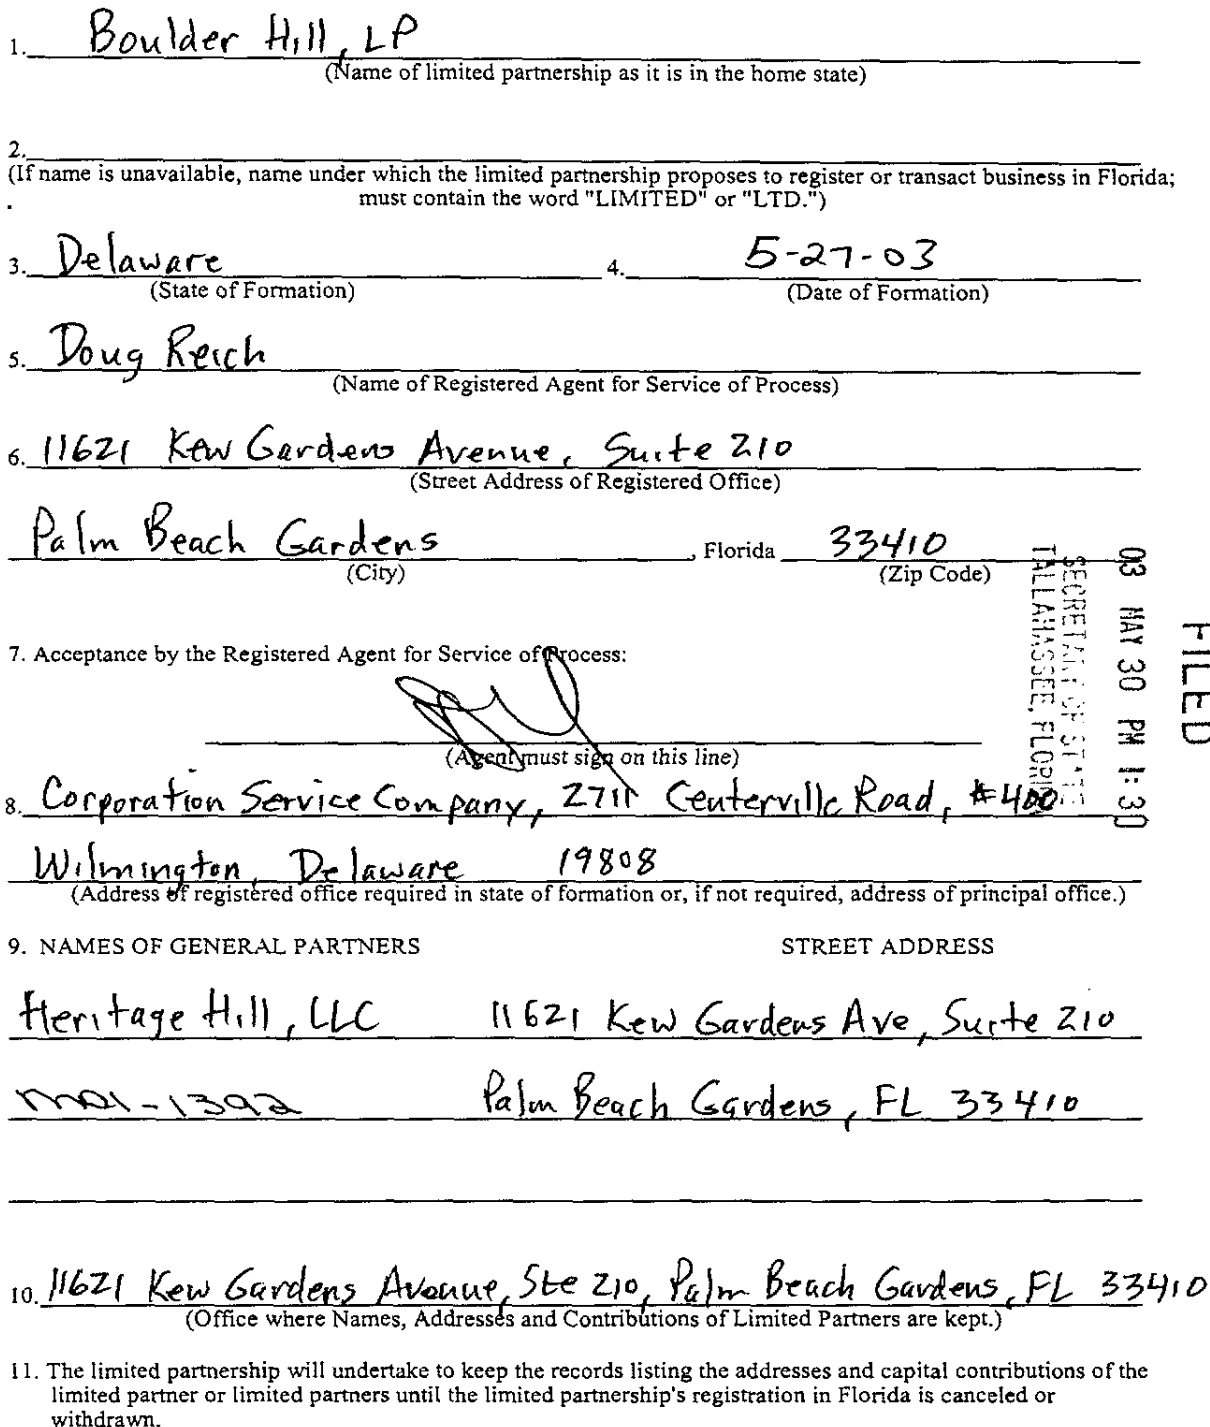 1. Boulder Hill, LP
(Name of limited partnership as it is in the home state)
2.
(If name is unavailable, name under which the limited partnership proposes to register or transact business in Florida;
must contain the word "LIMITED" or "LTD.")
3. Delaware 4. 5-27-03
(State of Formation) (Date of Formation)
5. Doug Reich
(Name of Registered Agent for Service of Process)
6. 11621 Kew Gardens Avenue, Suite 210
(Street Address of Registered Office)
Palm Beach Gardens, Florida 33410
(City) (Zip Code)
FILED
03 MAY 30 PM 1:30
SECRETARY OF STATE
TALLAHASSEE, FLORIDA
7. Acceptance by the Registered Agent for Service of Process:
(Agent must sign on this line)
8. Corporation Service Company, 2711 Centerville Road, #400
Wilmington, Delaware 19808
(Address of registered office required in state of formation or, if not required, address of principal office.)
9. NAMES OF GENERAL PARTNERS STREET ADDRESS
Heritage Hill, LLC 11621 Kew Gardens Ave, Suite 210
-1392 Palm Beach Gardens, FL 33410
10. 11621 Kew Gardens Avenue, Ste 210, Palm Beach Gardens, FL 33410
(Office where Names, Addresses and Contributions of Limited Partners are kept.)
11. The limited partnership will undertake to keep the records listing the addresses and capital contributions of the
limited partner or limited partners until the limited partnership's registration in Florida is canceled or
withdrawn.